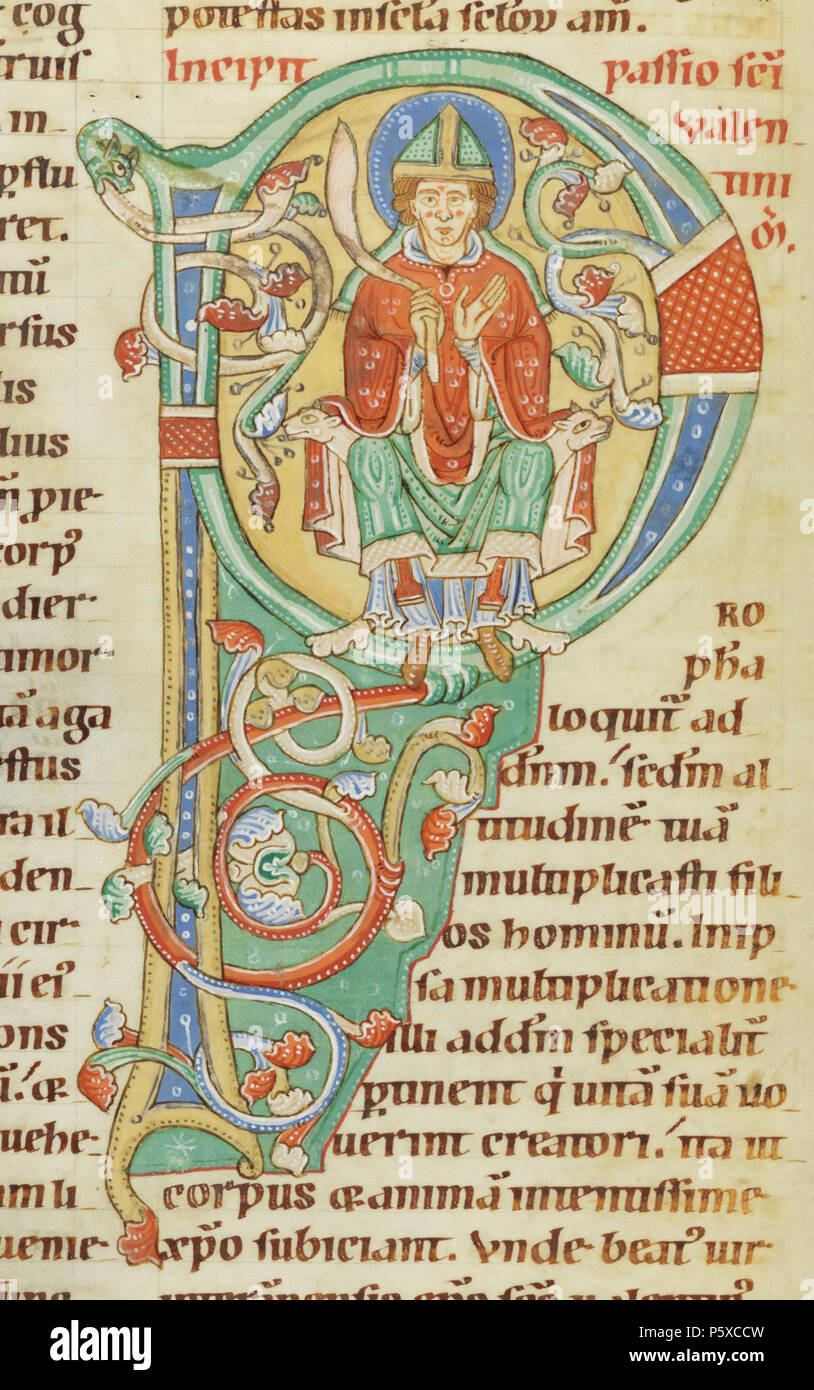 cog
truis
in
pſtu
ret.
mū
rſus
lis
lius
m̄ pie-
corp᷒
dier-
amor-
tā aga
ſtus
ra il
den
cir-
ii ei᷒
ons
ū. æ
uehe-
am li
uenie-
poteſtas in ſc̄la ſc̄lou am̄.
Incipit paſſio ſc̄i
Valen
tini
P
RO
pha
loquit᷑ ad
dn̄m. ſcd̄m al
titudinē tuā
multiplicaſti fili
os hominū. In ip
ſa multiplicatione
illi ad dm̄ ſpecialit᷑
ptinent q' uitā ſuā uo
uerint creatori. ita ut
corpus & animā intentiſſime
xp̄o ſubiciant. Vnde beat᷒ uir
alamy
Image ID: P5XCCW
www.alamy.com